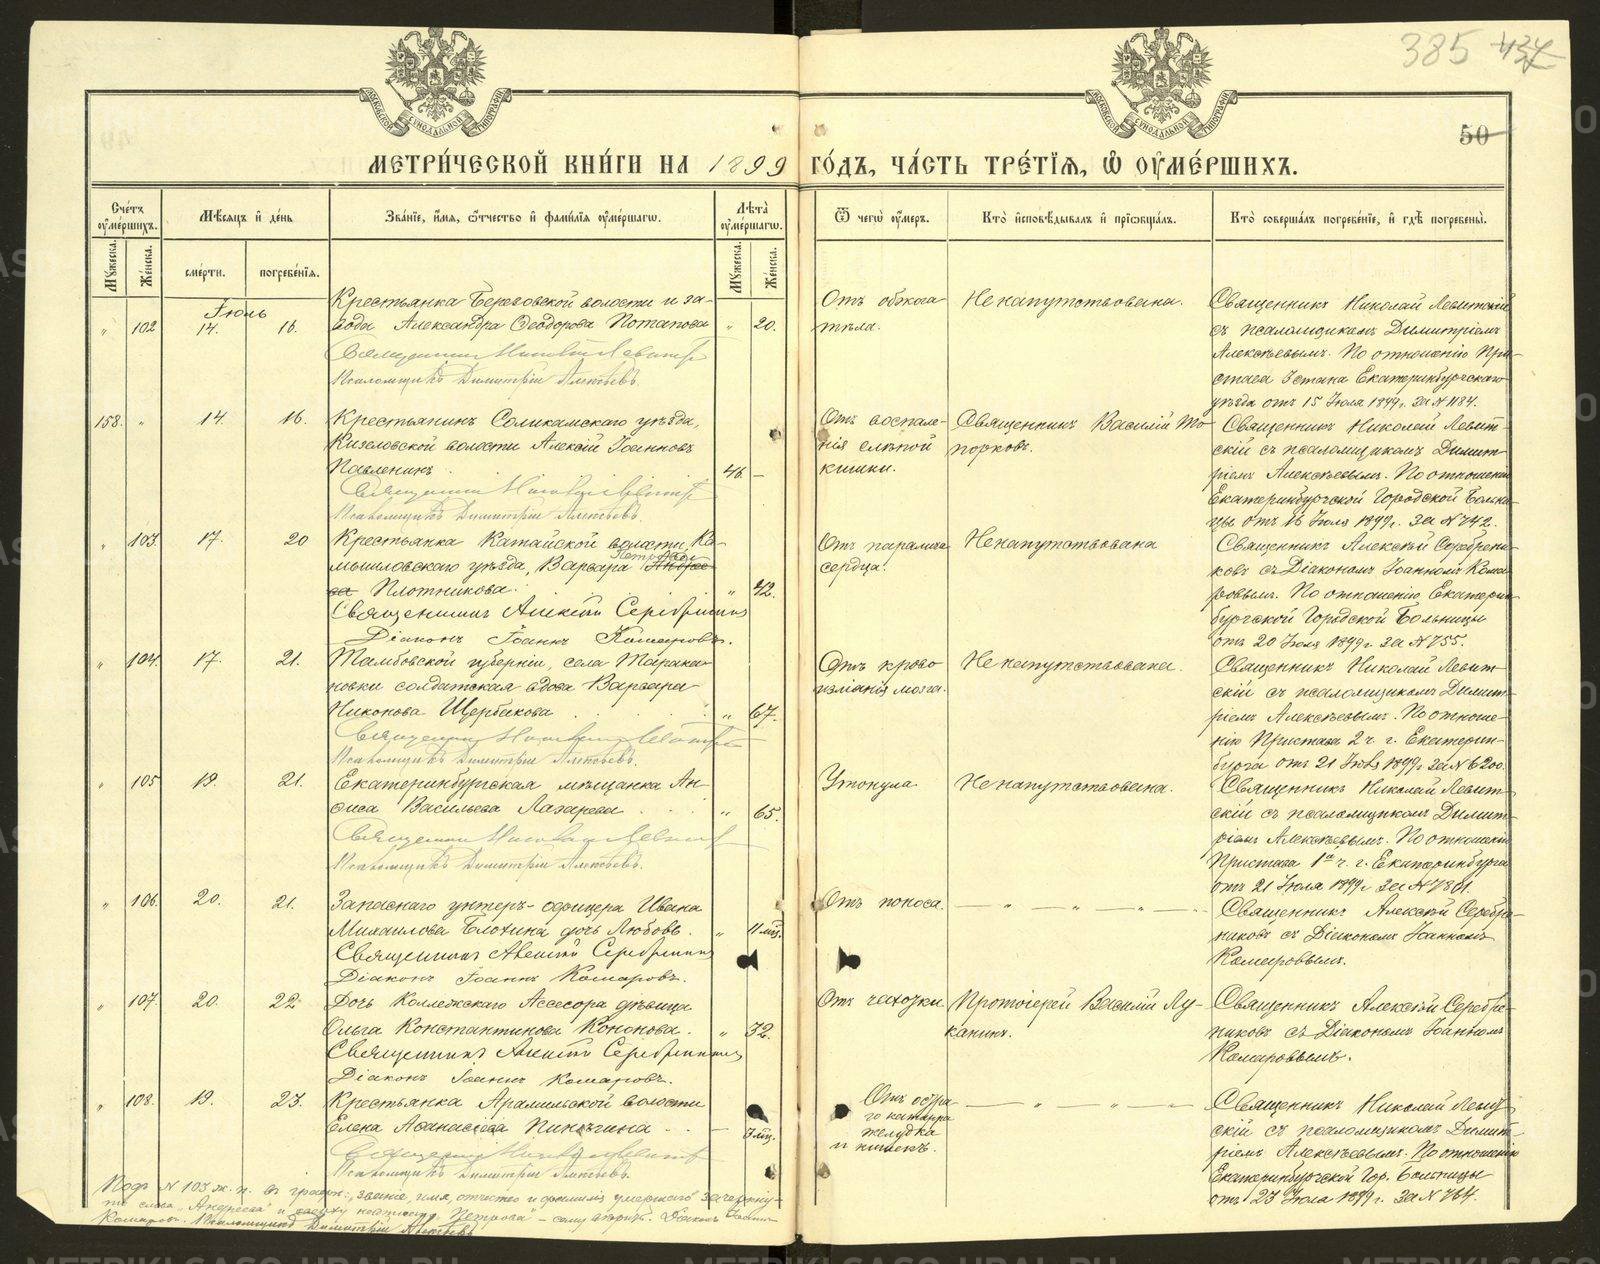 385 437
50
МОСКОВСКОЙ СѴНОДАЛЬНОЙ ТИПОГРАФІИ
МОСКОВСКОЙ СѴНОДАЛЬНОЙ ТИПОГРАФІИ
МЕТРИ́ЧЕСКОЙ КНИ́ГИ НА 1899 ГО́ДЪ, ЧА́СТЬ ТРЕ́ТІѦ, Ѡ҆ ОУ҆МЕ́РШИХЪ.
Сче́тъ оу҆ме́ршихъ.
Мѣ́сѧцъ и҆ де́нь
Зва́нїе, и҆́мѧ, ѻ҆́тчество и҆ фами́лїѧ оу҆ме́ршагѡ.
Лѣ́та оу҆ме́ршагѡ.
Ѿ чегѡ̀ оу҆́меръ.
Кто̀ и҆сповѣ́дывалъ и҆ прїѡбща́лъ.
Кто̀ соверша́лъ погребе́нїе, и҆ гдѣ̀ погребены̀.
Мꙋ́жеска.
Же́нска.
сме́рти.
погребе́нїѧ.
Мꙋ́жеска.
Же́нска.
Іюль
" 102 14. 16.
Крестьянка Береговской волости и за-
вода Александра Ѳеодорова Потапова " 20.
Священникъ Николай Левитскій
Псаломщикъ Димитрій Алексѣевъ.
Отъ обжога
тѣла.
Не напутствована.
Священникъ Николай Левитскій
съ псаломщикомъ Димитріемъ
Алексѣевымъ. По отношенію При-
става 3 стана Екатеринбургскаго
уѣзда отъ 15 Іюля 1899 г. за № 1184.
158. " 14. 16.
Крестьянинъ Соликамскаго уѣзда,
Кизеловской волости Алексій Іоанновъ
Павленинъ. 46. –
Священникъ Николай Левитскій
Псаломщикъ Димитрій Алексѣевъ.
Отъ воспале-
нія слѣпой
кишки.
Священникъ Василій То-
порковъ.
Священникъ Николай Левит-
скій съ псаломщикомъ Димит-
ріемъ Алексѣевымъ. По отношенію
Екатеринбургской Городской Больни-
цы отъ 16 Іюля 1899 г. за № 742.
" 103. 17. 20
Крестьянка Катайской волости, Ка-
мышловскаго уѣзда, Варвара Петрова Андрее-
ва Плотникова. " 42.
Священникъ Алексій Серебренниковъ
Діаконъ Іоаннъ Комаровъ.
Отъ паралича
сердца.
Не напутствована
Священникъ Алексій Серебрени-
ковъ съ Діакономъ Іоанномъ Кома-
ровымъ. По отношенію Екатерин-
бургской Городской Больницы
отъ 20 Іюля 1899 г. за № 755.
" 104. 17. 21.
Тамбовской губерніи, села Тарака-
новки солдатская вдова Варвара
Никонова Щербакова " 67.
Священникъ Николай Левитскій
Псаломщикъ Димитрій Алексѣевъ.
Отъ крово
изліянія мозга.
Не напутствована.
Священникъ Николай Левит-
скій съ псаломщикомъ Димит-
ріемъ Алексѣевымъ. По отноше-
нію Пристава 2 ч. г. Екатерин-
бурга отъ 21 Іюля 1899 г. за № 6200.
" 105 19. 21.
Екатеринбургская мѣщанка Ан-
фиса Васильева Лазарева " 65.
Священникъ Николай Левитскій
Псаломщикъ Димитрій Алексѣевъ.
Утонула
Не напутствована.
Священникъ Николай Левит-
скій съ псаломщикомъ Димит-
ріемъ Алексѣевымъ. По отношенію
Пристава 1ой ч. г. Екатеринбурга
отъ 21 Іюля 1899 г. за № 7801.
" 106. 20. 21.
Запаснаго унтеръ-офицера Ивана
Михаилова Блохина дочь Любовь. " 11 мѣс.
Священникъ Алексій Серебренниковъ
Діаконъ Іоаннъ Комаровъ.
Отъ поноса. — " — " — " —
Священникъ Алексій Серебре-
никовъ съ Діакономъ Іоанномъ
Комаровымъ.
" 107. 20. 22
Дочь Коллежскаго Ассесора дѣвица
Ольга Константинова Кононова. " 32.
Священникъ Алексій Серебренниковъ
Діаконъ Іоаннъ Комаровъ.
Отъ чахотки
Протоіерей Василій Лу-
канинъ.
Священникъ Алексій Серебре-
никовъ съ Діакономъ Іоанномъ
Комаровымъ.
" 108. 19. 23.
Крестьянка Арамильской волости
Елена Аѳанасіева Пинягина. – 7 мѣс.
Священникъ Николай Левитскій
Псаломщикъ Димитрій Алексѣевъ.
Отъ остра-
го катарра
желудка
и кишекъ.
— " — " — " —
Священникъ Николай Левит-
скій съ псаломщикомъ Димит-
ріемъ Алексѣевымъ. По отношенію
Екатеринбургской Гор. Больницы
отъ 23 Іюля 1899 г. за № 764.
Подъ № 103 ж. п. въ графѣ: "званіе, имя, отчество и фамилія умершаго" зачеркну-
то слово "Андреева" и сверху "Петрова" – Діаконъ Іоаннъ
Комаровъ. Псаломщикъ Димитрій Алексѣевъ